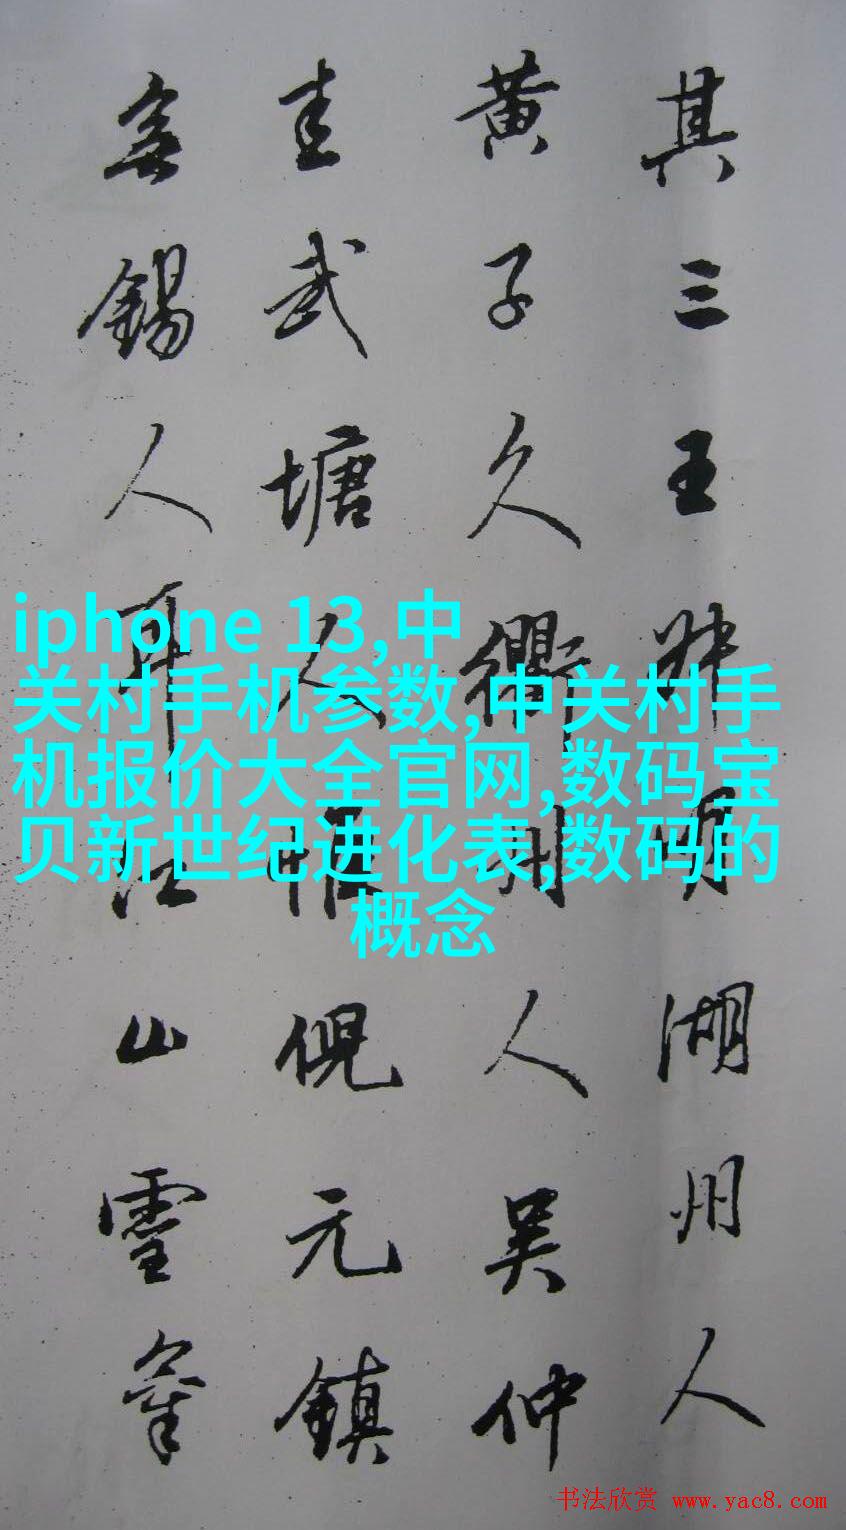 其三王叔明湖州人
黄子久衢州人吴仲
圭武塘人惟倪元鎮
無錫人耳江山霊
iphone 13,中
关村手机参数,中关村手
机报价大全官网,数码宝
贝新世纪进化表,数码的
概念
书法欣赏 www.yac8.com